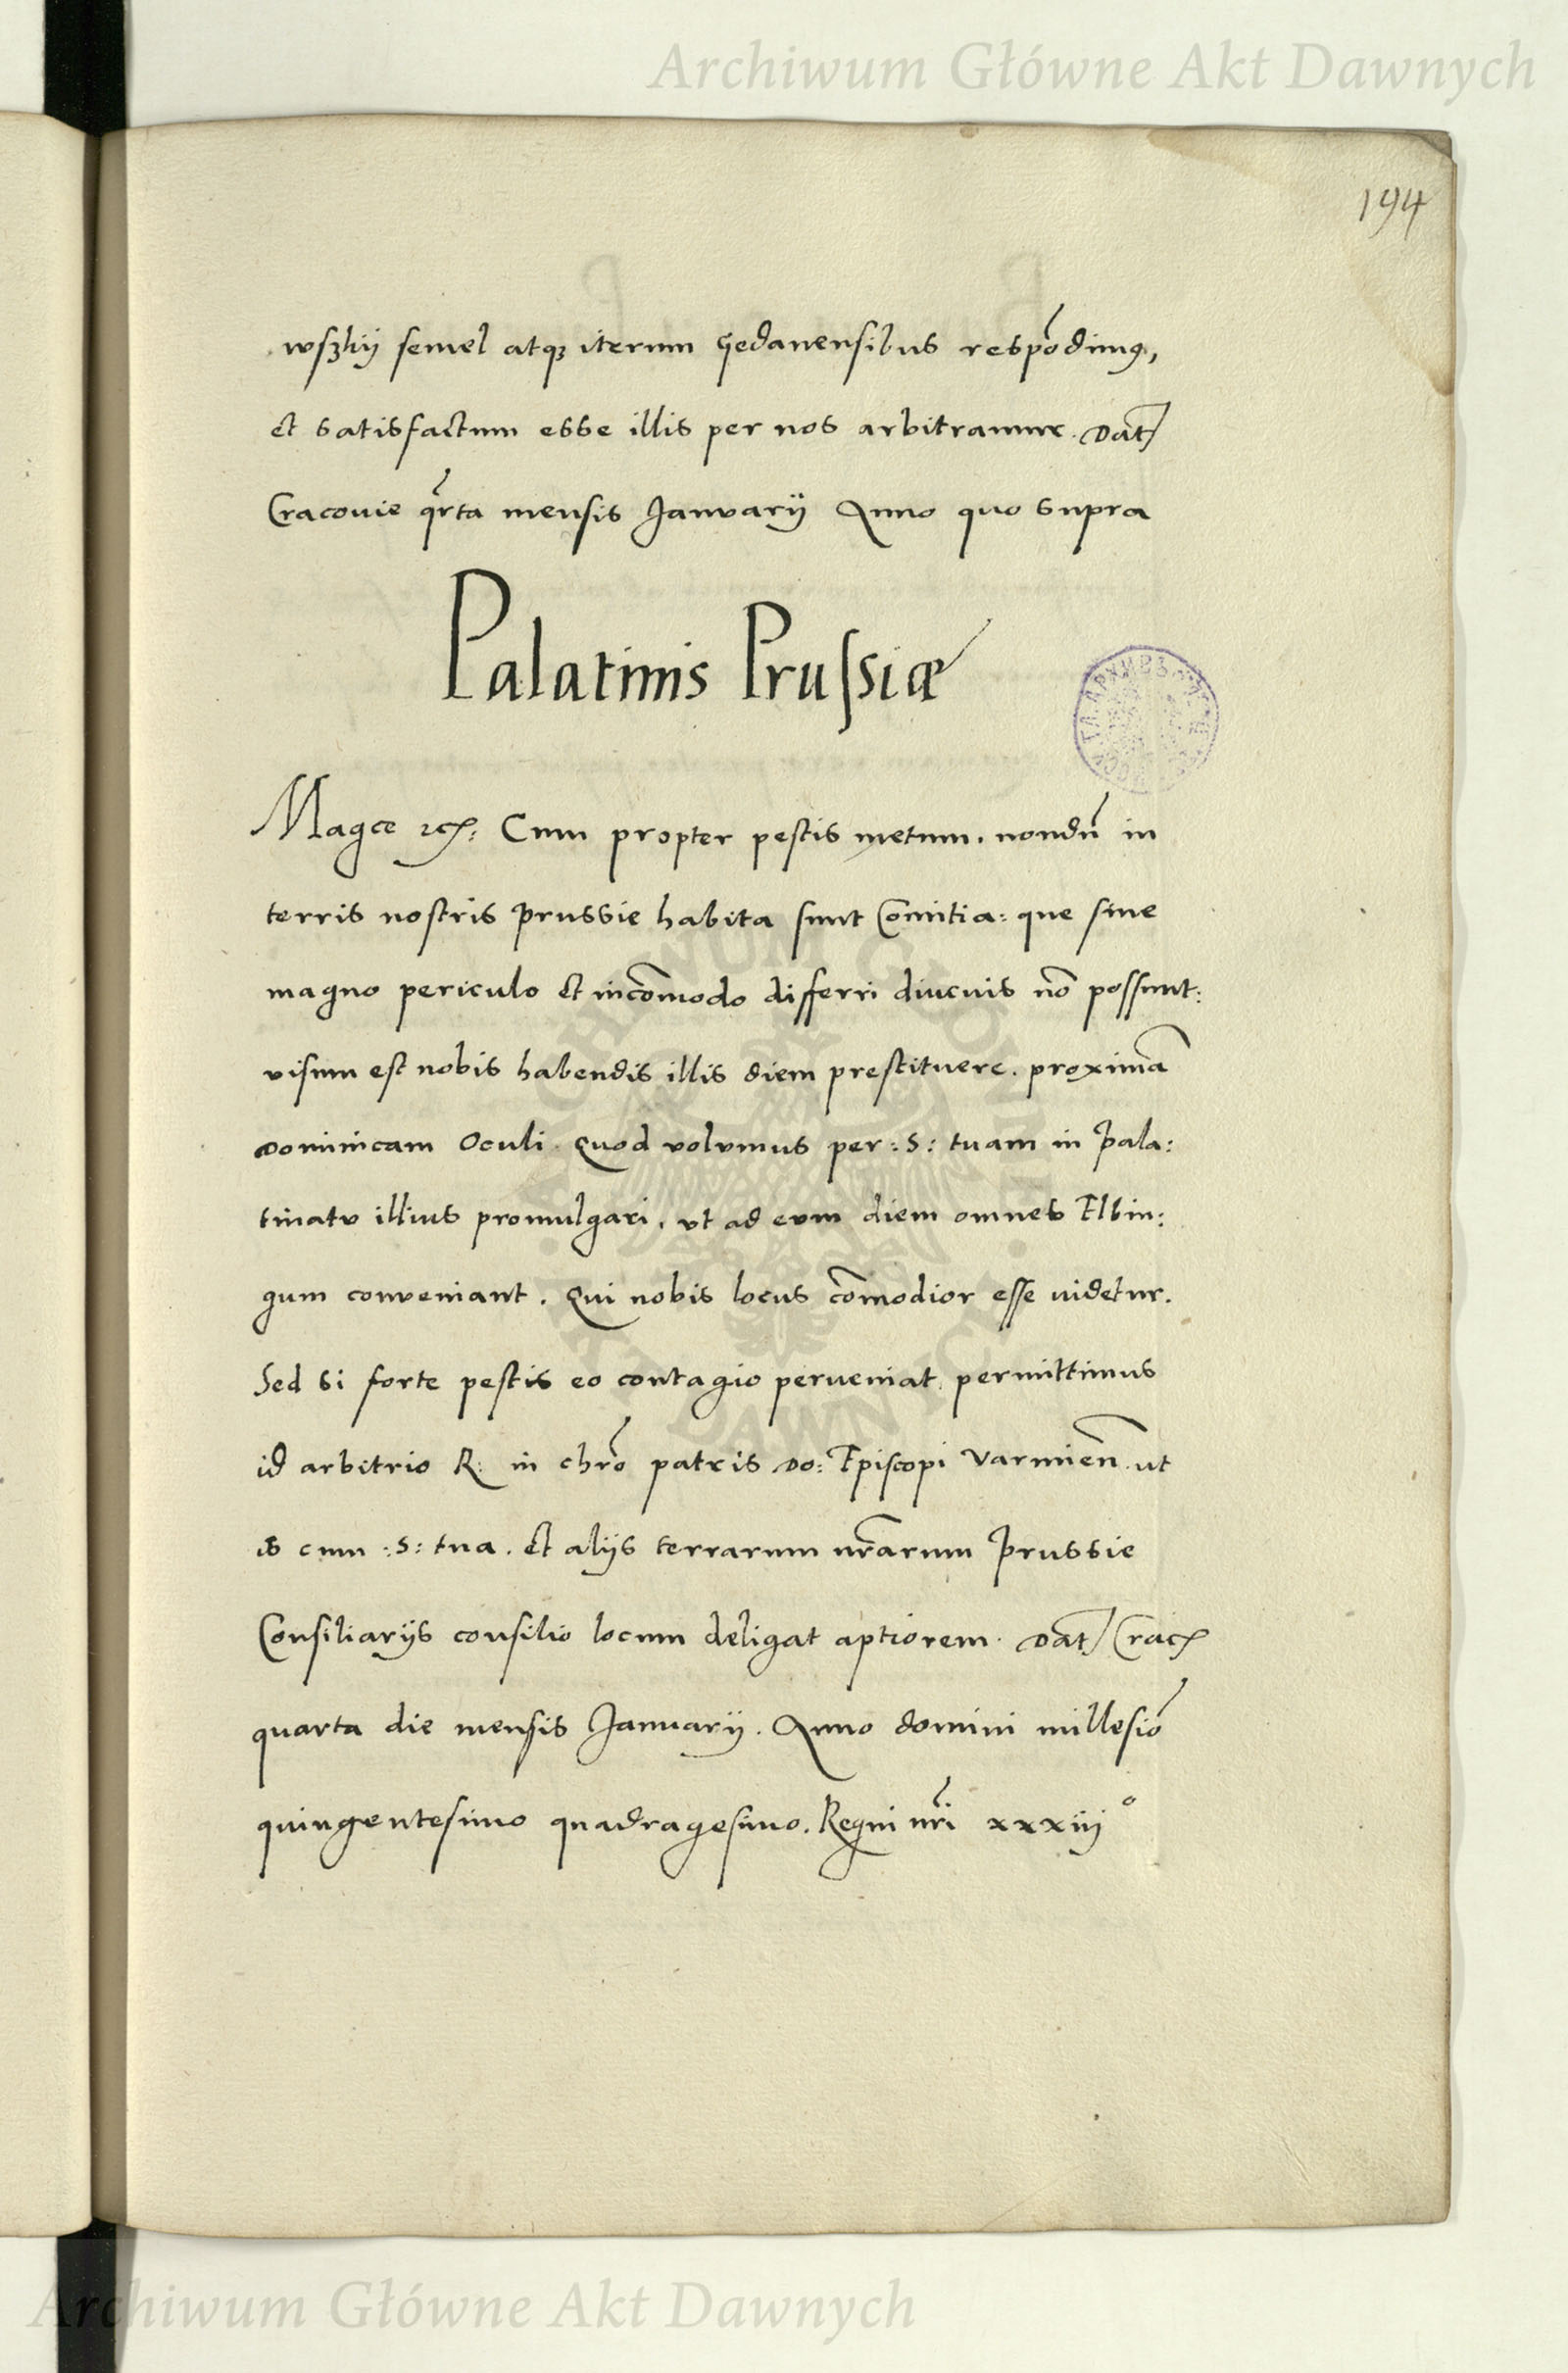 Archiwum Główne Akt Dawnych
194
wszkij semel atq3 iterum Gedanensibus respõdimꝯ,
et satisfactum esse illis per nos arbitramur. Dat
Cracouie qrta mensis Januarij Anno quo supra
Palatinis Prussiæ
Magce etc. Cum propter pestis metum, nondũ in
terris nostris Prussie habita sunt Comitia: que sine
magno periculo et incõmodo differri diucuis nõ possunt:
visum est nobis habendis illis diem prestituere. proximã
Dominicam Oculi. Quod volumus per :S: tuam in pala:
tinatu illius promulgari, vt ad eum diem omnes Elbin:
gum conveniant. Qui nobis locus cõmodior esse uidetur.
Sed si forte pestis eo contagio perveniat permittimus
id arbitrio R: in chro patris Do: Episcopi Varmien. ut
is cum :S: tua. Et alijs terrarum nrarum Prussie
Consiliarijs consilio locum deligat aptiorem. Dat Crac
quarta die mensis Januarij. Anno domini millesio
quingentesimo quadragesimo. Regni nri xxxiiij°
Archiwum Główne Akt Dawnych